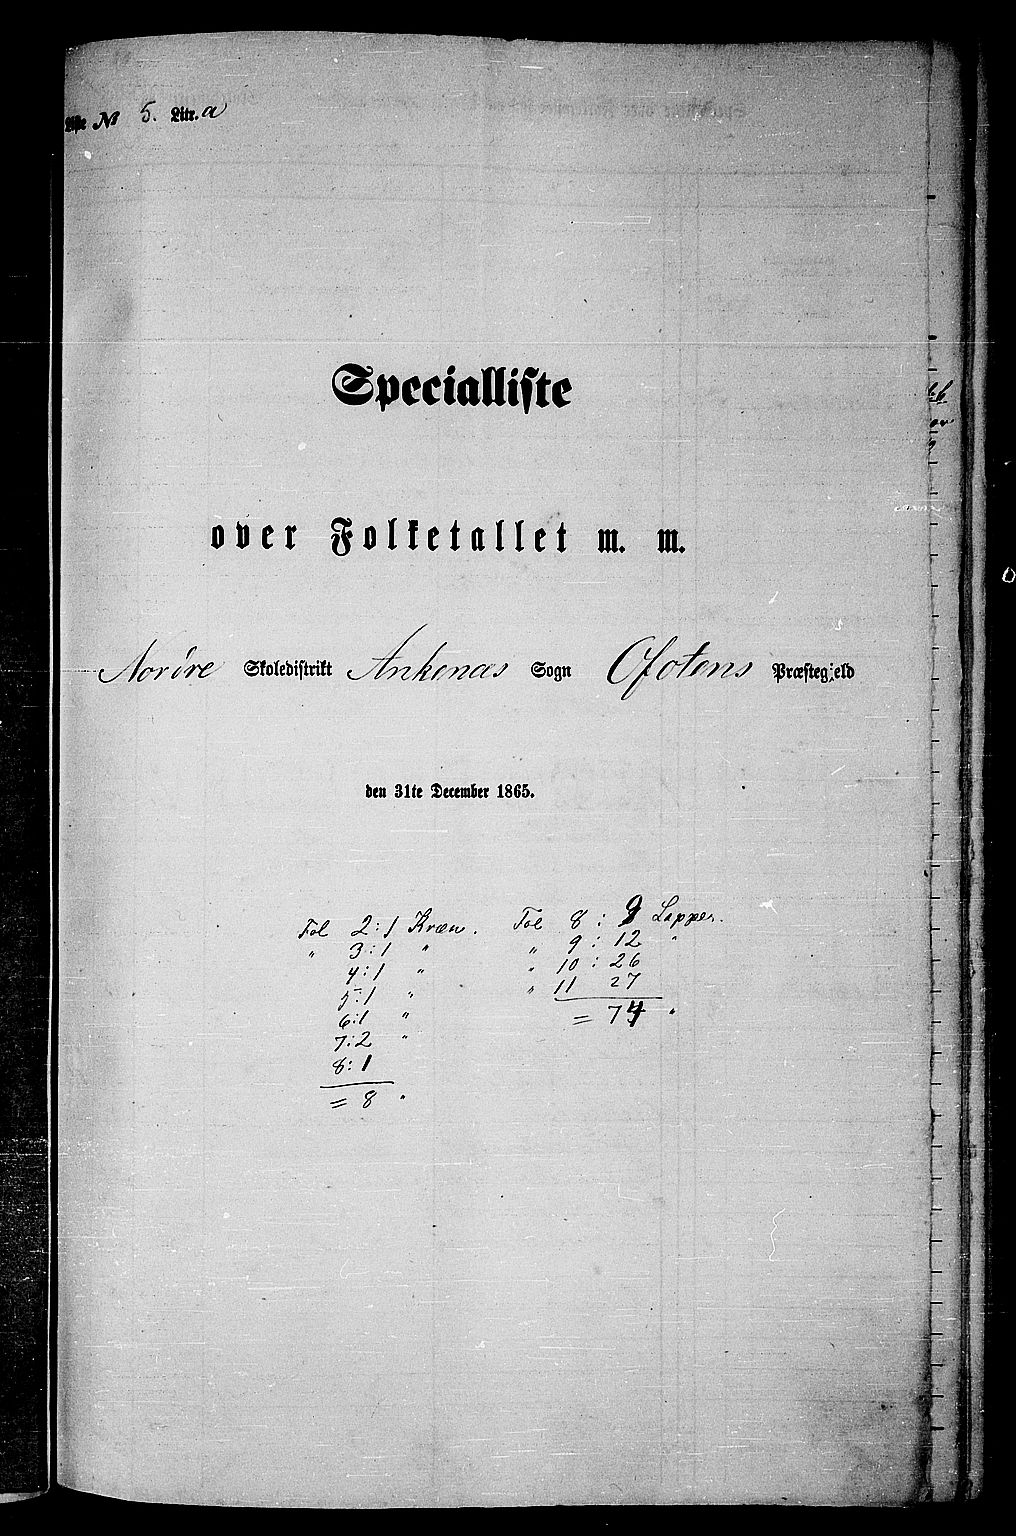 Liste № 5. Litr. a
Specialliste
over Folketallet m. m.
Nordre Skoledistrikt Ankenæs Sogn Ofotens Præstegjeld
den 31te December 1865.
Fol 2:1 Kræn. Fol 8 : 9 Lapper.
" 3:1 " " 9 : 12 "
4:1 " " 10 : 26
5:1 " " 11 27
6:1 " = 74 "
7:2 "
8:1
= 8 "